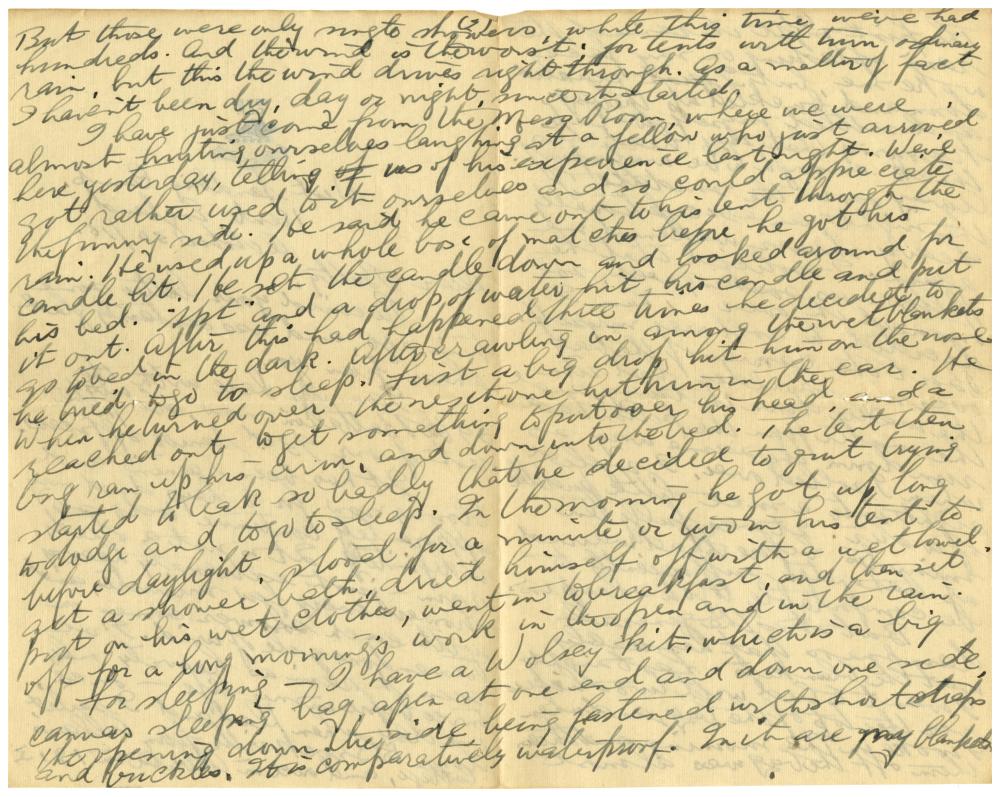 (2)
But those were only single showers, while this time we've had
hundreds. And the wind is the worst, for tents will turn ordinary
rain, but this the wind drives right through. As a matter of fact
I haven't been dry, day or night, since it started.
I have just come from the Mess Room, where we were
almost hurting ourselves laughing at a fellow who just arrived
here yesterday, telling us of his experience last night. We've
got rather used to it ourselves and so could appreciate
the funny side. He said he came out to his tent through the
rain. He used up a whole box of matches before he got his
candle lit. He set the candle down and looked around for
his bed. "spt" and a drop of water hit his candle and put
it out. After this had happened three times he decided to
go to bed in the dark. After crawling in among the wet blankets
he tried to go to sleep. First a big drop hit him on the nose
When he turned over the next one hit him in the ear. He
reached out to get something to put over his head, and a
bug ran up his arm, and down into the bed. The tent then
started to leak so badly that he decided to quit trying
to dodge and to go to sleep. In the morning he got up long
before daylight, stood for a minute or two in his tent to
get a shower bath, dried himself off with a wet towel,
put on his wet clothes, went in to breakfast, and then set
off for a long mornings work in the open and in the rain.
For sleeping I have a Wolsey kit, which is a big
canvas sleeping bag open at one end and down one side,
the opening down the side being fastened with short straps
and buckles. It is comparatively waterproof. In it are my blankets